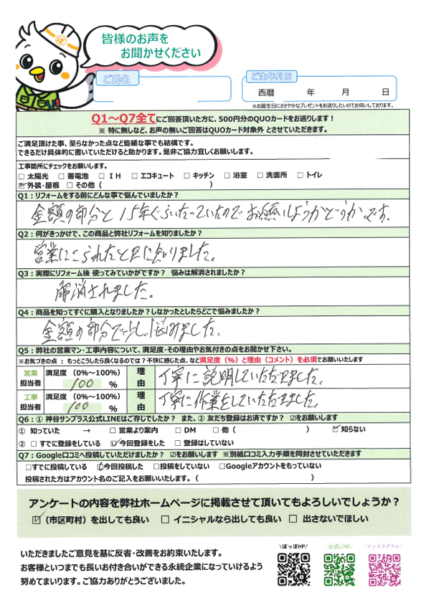 皆様のお声を
お聞かせください
ご氏名
ご生年月日
西暦 年 月 日
※お誕生日にささやかなプレゼントをお送りしたいのでお伺いしております。
Q1～Q7全てにご回答頂いた方に、500円分のQUOカードをお送りします!
※ 特に無しなど、お声の無いご回答はQUOカード対象外 とさせていただきます。
ご満足頂けた事、至らなかった点など些細な事でも結構です。
できるだけ具体的に書いていただけると助かります。是非ご協力宜しくお願いします。
工事箇所にチェックをお願いします。
□ 太陽光 □ 蓄電池 □ IH □ エコキュート □ キッチン □ 浴室 □ 洗面所 □ トイレ
☑外装・屋根 □ その他 ( )
Q1：リフォームをする前にどんな事で悩んでいましたか？
金額の部分と15年くらいたっていたのでお願いしようかどうかです。
Q2：何がきっかけで、この商品と弊社リフォームを知りましたか？
営業にこられたときに知りました。
Q3：実際にリフォーム後 使ってみていかがですか？ 悩みは解消されましたか？
解消されました。
Q4：商品を知ってすぐに購入となりましたか？しなかったとしたらどこで悩みましたか？
金額の部分で少し悩みました。
Q5：弊社の営業マン・工事内容について、満足度・その理由やお気付きの点をお聞かせ下さい。
※お気づきの点：もっとこうしたら良くなるのでは？不快に感じた点、など満足度（%）と理由（コメント）を必須でお願いいたします
営業担当者 満足度（0%～100%） 100 % 理由 丁寧に説明していただきました。
工事担当者 満足度（0%～100%） 100 % 理由 丁寧に作業をしていただきました。
Q6：① 神谷サンプラス公式LINEはご存じでしたか？ また、② 友だち登録はお済ですか？ ☑をお願いします
① 知っていた → □ 営業より案内 □ DM □ 他（ ） ☑知らない
② □ すでに登録をしている ☑今回登録をした □ 登録はしていない
Q7：Google口コミへ投稿していただけましたか？ ☑をお願いします ※別紙口コミ入力手順を同封させていただきます
□すでに投稿している ☑今回投稿した □投稿をしていない □Googleアカウントをもっていない
投稿された方はアカウント名のご記入をお願いいたします。（ ）
アンケートの内容を弊社ホームページに掲載させて頂いてもよろしいでしょうか？
☑（市区町村）を出しても良い □ イニシャルなら出しても良い □ 出さないでほしい
いただきましたご意見を基に反省・改善をお約束いたします。
お客様といつまでも長いお付き合いができる永続企業になっていけるよう
努めてまいります。ご協力ありがとうございました。
\ぽっぽHP/
公式LINE
インスタグラム